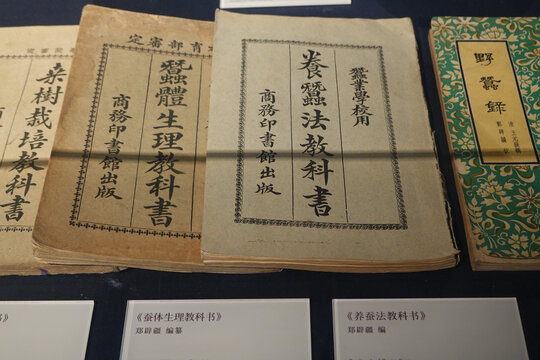 桑樹栽培教科書
育部審定
蠶體生理教科書
商務印書館出版
蠶業學校用
養蠶法教科書
商務印書館出版
野蠶錄
《蚕体生理教科书》
郑辟疆 编纂
《养蚕法教科书》
郑辟疆 编
书》